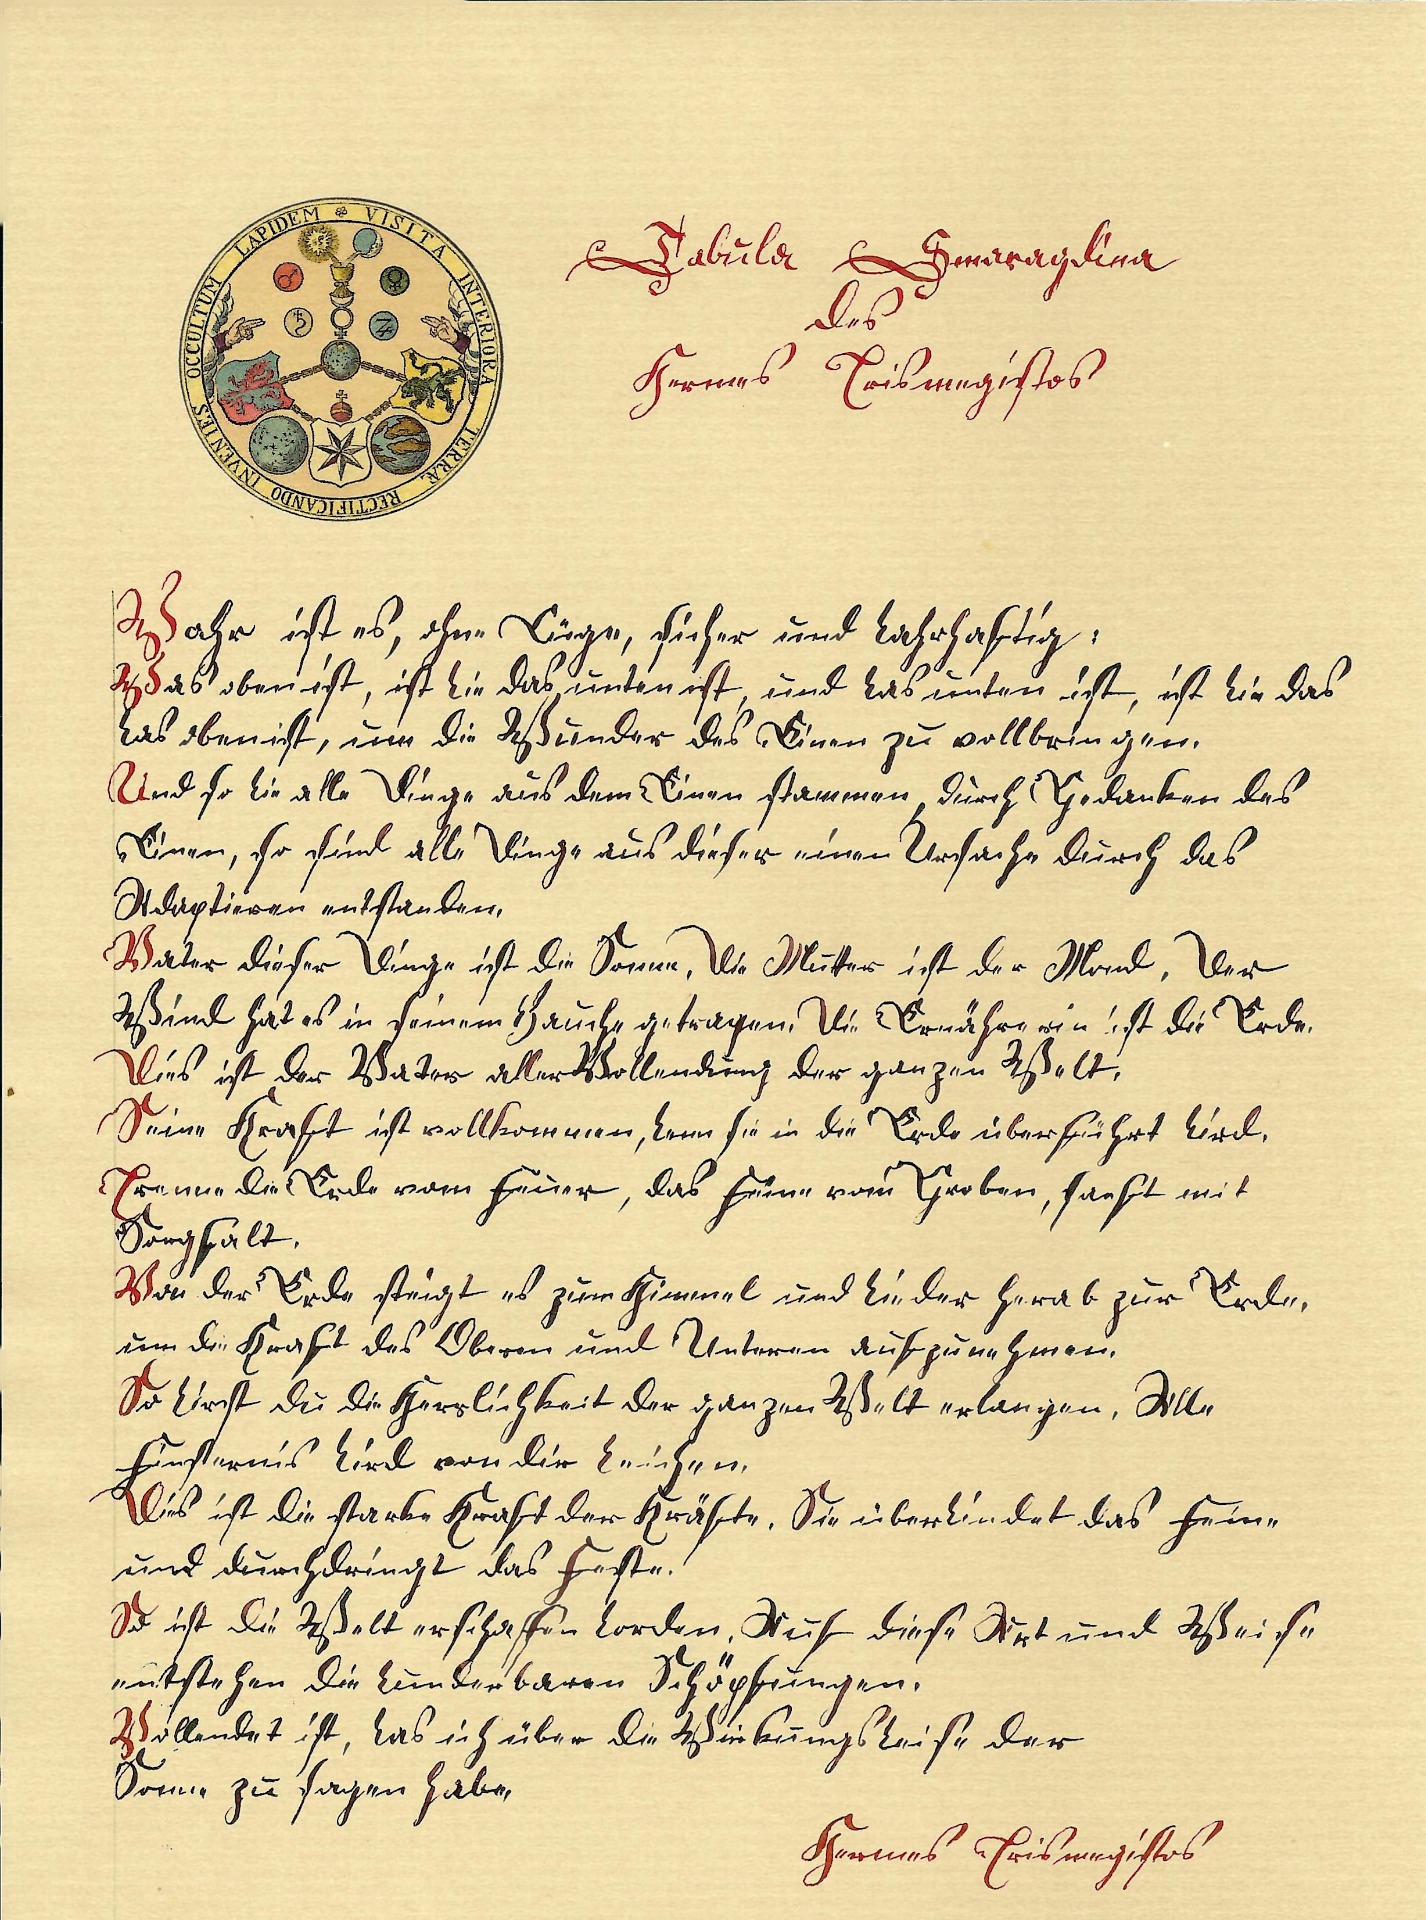 VISITA INTERIORA TERRÆ RECTIFICANDO INVENIES OCCULTUM LAPIDEM
Tabula Smaragdina
des
Hermes Trismegistos
Wahr ist es, ohne Lüge, sicher und wahrhaftig:
Was oben ist, ist wie das unten ist, und was unten ist, ist wie das
was oben ist, um die Wunder des Einen zu vollbringen.
Und so wie alle Dinge aus dem Einen stammen, durch Gedanken des
Einen, so sind alle Dinge aus dieser einen Ursache durch das
Adaptieren entstanden.
Vater dieser Dinge ist die Sonne, Die Mutter ist der Mond, Der
Wind hat es in seinem Bauche getragen. Die Ernährerin ist die Erde.
Dies ist der Vater aller Vollendung der ganzen Welt.
Seine Kraft ist vollkommen, wenn sie in die Erde überführt wird.
Trenne die Erde vom Feuer, das Feine vom Groben, sanft mit
Sorgfalt.
Von der Erde steigt es zum Himmel und wieder herab zur Erde,
um die Kraft des Oberen und Unteren aufzunehmen.
So wirst du die Herrlichkeit der ganzen Welt erlangen. Alle
Finsternis wird von dir weichen.
Dies ist die starke Kraft der Kräfte. Sie überwindet das Feine
und durchdringt das Feste.
So ist die Welt erschaffen worden. Auf diese Art und Weise
entstehen die wunderbaren Schöpfungen.
Vollendet ist, was ich über die Wirkungsweise der
Sonne zu sagen habe.
Hermes Trismegistos